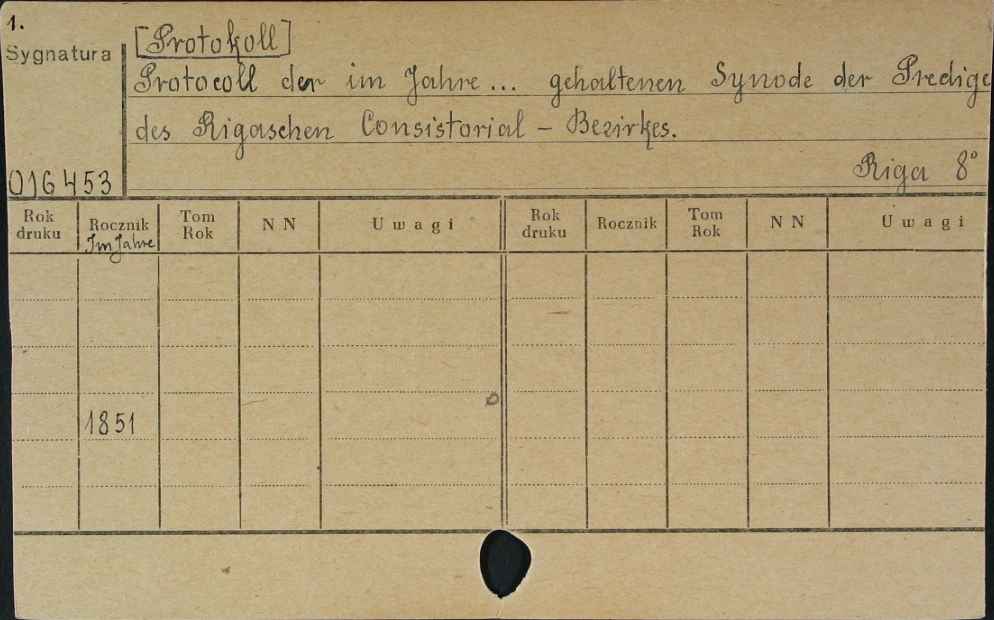 1.
Sygnatura
[Protokoll]
Protocoll der im Jahre... gehaltenen Synode der Predige
des Rigaschen Consistorial - Bezirkes.
016453
Riga 8°
Rok druku Rocznik Tom Rok NN Uwagi Rok druku Rocznik Tom Rok NN Uwagi
Im Jahre
1851